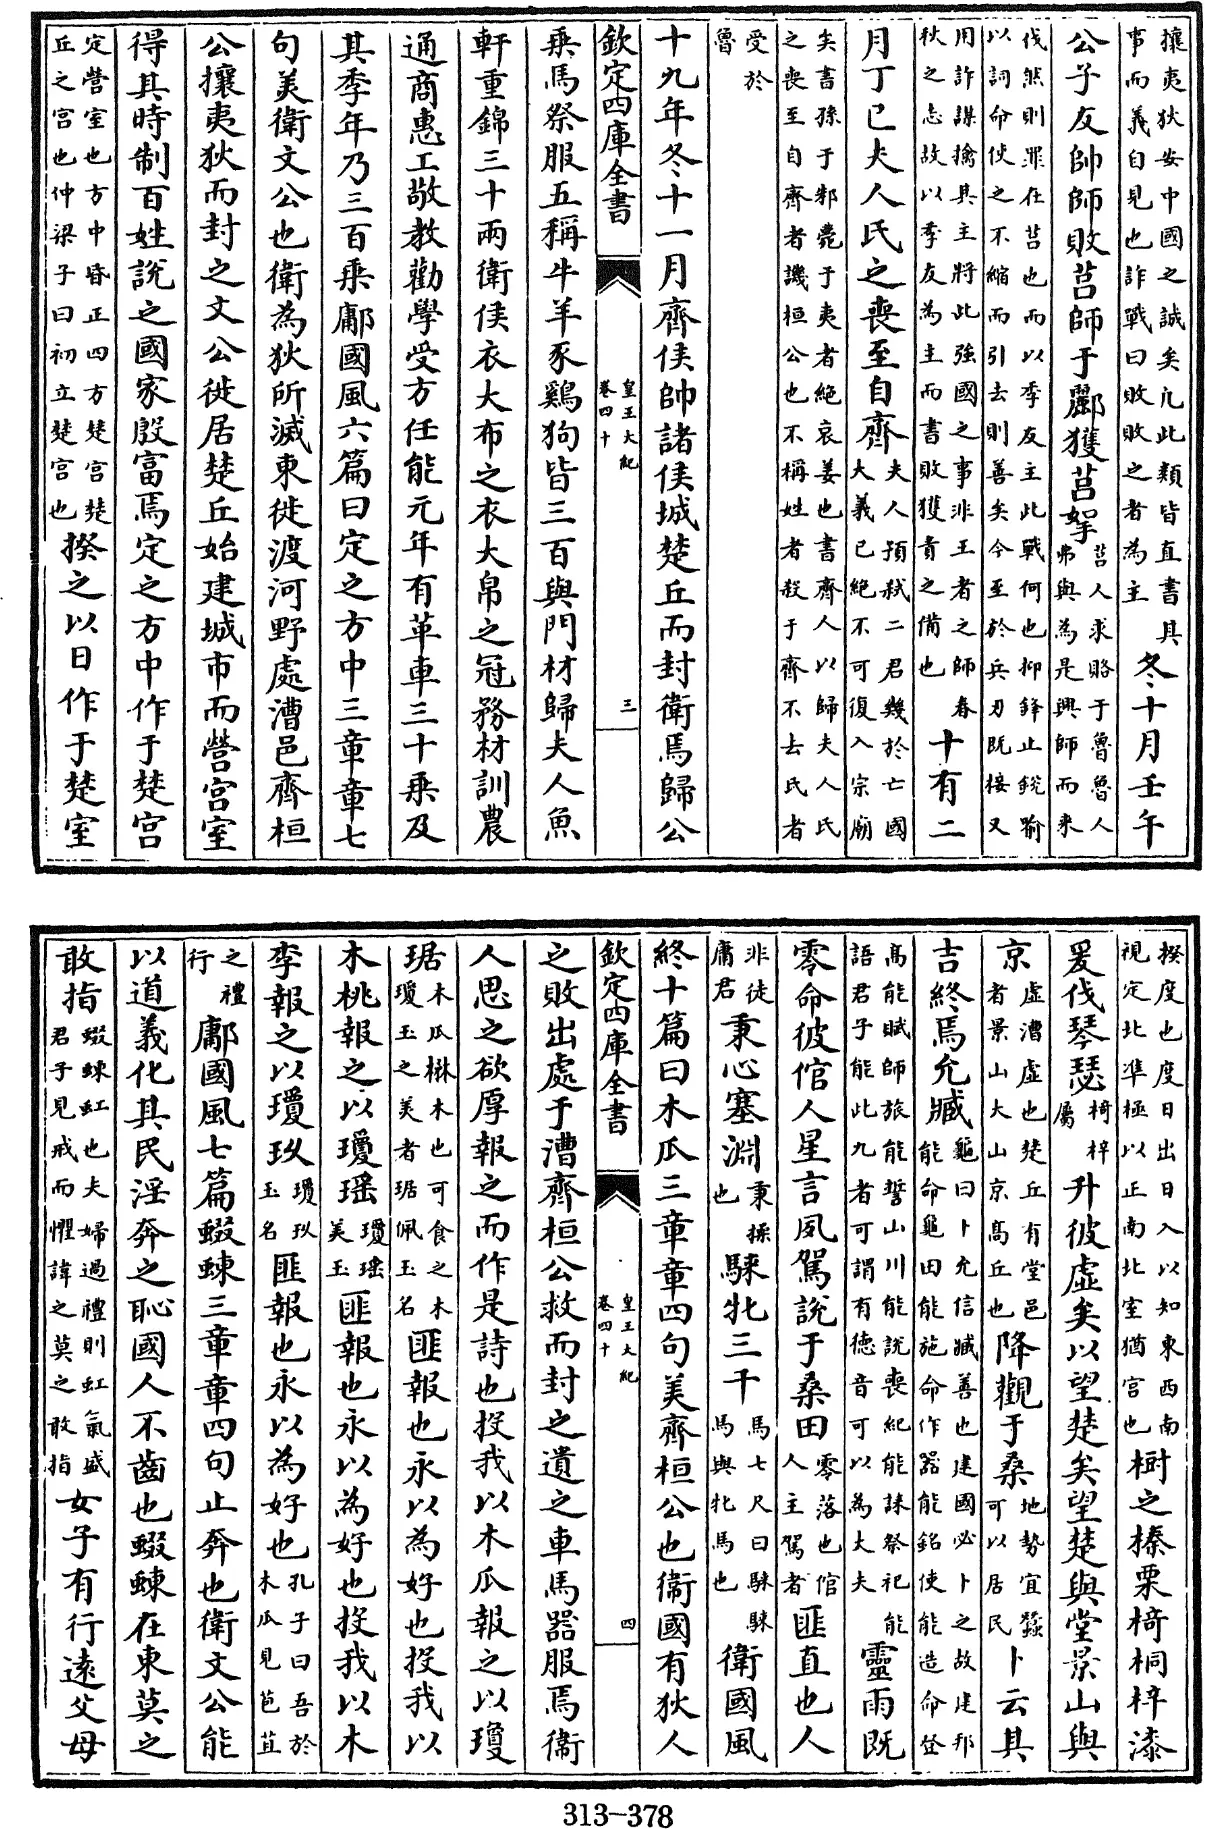 攘夷狄安中國之誠矣凡此類皆直書其事而義自見也詐戰曰敗敗之者為主冬十月壬午
公子友帥師敗莒師于酈獲莒挐莒人求賂于魯魯人弗與為是興師而来
伐然則罪在莒也而以季友主此戰何也抑鋒止銳喻以詞命使之不縮而引去則善矣今至於兵刃既接又
用詐謀擒其主將此強國之事非王者之師春秋之志故以季友為主而書敗獲責之備也十有二
月丁巳夫人氏之喪至自齊夫人預弑二君幾於亡國大義已絕不可復入宗廟
矣書孫于邾薨于夷者絶哀姜也書齊人以歸夫人氏之喪至自齊者譏桓公也不稱姓者殺于齊不去氏者
受於魯
十九年冬十一月齊侯帥諸侯城楚丘而封衛焉歸公
欽定四庫全書 皇王大紀 卷四十 三
乘馬祭服五稱牛羊豕鷄狗皆三百與門材歸夫人魚
軒重錦三十兩衛侯衣大布之衣大帛之冠務材訓農
通商惠工敬教勸學受方任能元年有革車三十乗及
其季年乃三百乗鄘國風六篇曰定之方中三章章七
句美衛文公也衛為狄所滅東徙渡河野處漕邑齊桓
公攘夷狄而封之文公徙居楚丘始建城市而營宮室
得其時制百姓說之國家殷富焉定之方中作于楚宮
定營室也方中昏正四方楚宮楚丘之宮也仲梁子曰初立楚宮也揆之以日作于楚室
揆度也度日出日入以知東西南視定北準極以正南北室猶宮也樹之榛栗椅桐梓漆
爰伐琴瑟椅梓屬升彼虛矣以望楚矣望楚與堂景山與
京虛漕虛也楚丘有堂邑者景山大山京高丘也降觀于桑地勢宜蠶可以居民卜云其
吉終焉允臧龜曰卜允信臧善也建國必卜之故建邦能命龜田能施命作器能銘使能造命登
高能賦師旅能誓山川能說喪紀能誄祭祀能語君子能此九者可謂有德音可以為大夫靈雨既
零命彼倌人星言夙駕說于桑田零落也倌人主駕者匪直也人
非徒庸君秉心塞淵秉操也騋牝三千馬七尺曰騋騋馬與牝馬也衛國風
終十篇曰木瓜三章章四句美齊桓公也衛國有狄人
欽定四庫全書 皇王大紀 卷四十 四
之敗出處于漕齊桓公救而封之遺之車馬器服焉衛
人思之欲厚報之而作是詩也投我以木瓜報之以瓊
琚木瓜楙木也可食之木瓊玉之美者琚佩玉名匪報也永以為好也投我以
木桃報之以瓊瑤瓊瑤美玉匪報也永以為好也投我以木
李報之以瓊玖瓊玖玉名匪報也永以為好也孔子曰吾於木瓜見苞苴
之禮行鄘國風七篇蝃蝀三章章四句止奔也衛文公能
以道義化其民淫奔之恥國人不齒也蝃蝀在東莫之
敢指蝃蝀虹也夫婦過禮則虹氣盛君子見戒而懼諱之莫之敢指女子有行遠父母
313-378